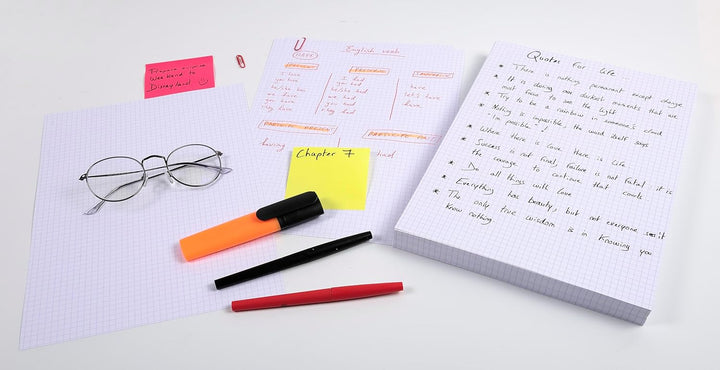 Weekend to
Disneyland
HAVE
English verb
PRESENT PRETERITE
I have I had have
you have you had let's have
he/she has had have
we have we had
you have you had
they have they had
PARTICIPE PRESENT PARTICIPE
having had
Chapter 7
Quotes For Life
* There is nothing permanent except change
* It is during our darkest moments that we
must focus to see the light
* Try to be a rainbow in someone's cloud
* Nothing is impossible, the word itself says
"I'm possible"!
* Where there is love there is life
* Success is not final, failure is not fatal: it is
the courage to continue that counts
* Do all things with love
* Everything has beauty, but not everyone sees it
* The only true wisdom is in knowing you
know nothing